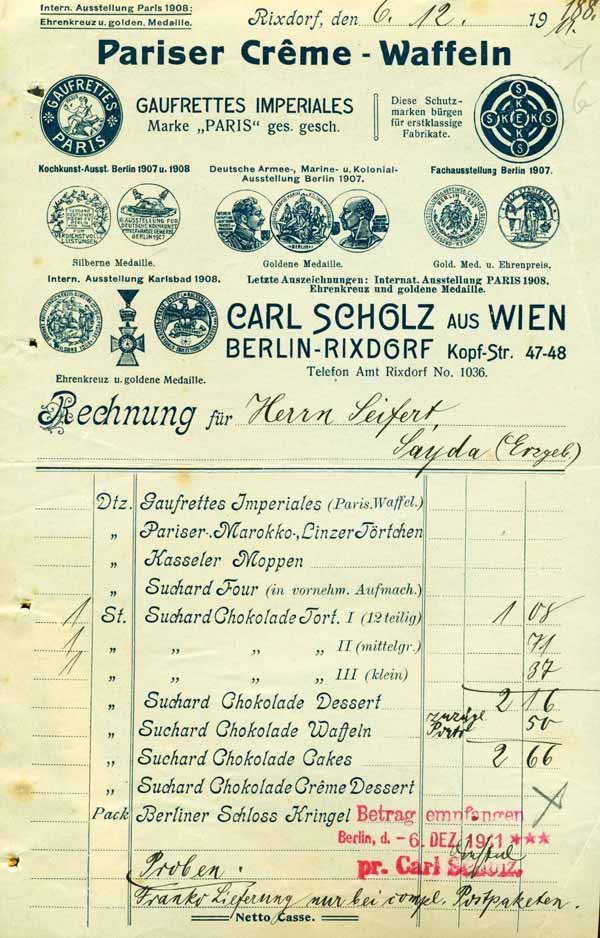 Intern. Ausstellung Paris 1908:
Ehrenkreuz u. golden. Medaille.
Rixdorf, den 6. 12. 19 11.
Pariser Crême - Waffeln
GAUFRETTES PARIS
GAUFRETTES IMPERIALES
Marke „PARIS“ ges. gesch.
Diese Schutz-
marken bürgen
für erstklassige
Fabrikate.
SKEKS
SKEKS
Kochkunst-Ausst. Berlin 1907 u. 1908
Deutsche Armee-, Marine- u. Kolonial-
Ausstellung Berlin 1907.
Fachausstellung Berlin 1907.
Silberne Medaille.
Goldene Medaille.
Gold. Med. u. Ehrenpreis.
Intern. Ausstellung Karlsbad 1908.
Letzte Auszeichnungen: Internat. Ausstellung PARIS 1908,
Ehrenkreuz und goldene Medaille.
CARL SCHOLZ AUS WIEN
BERLIN-RIXDORF Kopf-Str. 47-48
Telefon Amt Rixdorf No. 1036.
Ehrenkreuz u. goldene Medaille.
Rechnung für Herrn Seifert,
Sayda (Erzgeb.)
Dtz. Gaufrettes Imperiales (Paris. Waffel.)
„ Pariser-, Marokko-, Linzer Törtchen
„ Kasseler Moppen
„ Suchard Four (in vornehm. Aufmach.)
1 St. Suchard Chokolade Tort. I (12 teilig) 1 08
1 „ „ „ „ II (mittelgr.) 71
1 „ „ „ „ III (klein) 37
„ Suchard Chokolade Dessert 2 16
„ Suchard Chokolade Waffeln Porto 50
„ Suchard Chokolade Cakes 2 66
„ Suchard Chokolade Crême Dessert
Pack Berliner Schloss Kringel
Betrag empfangen
Berlin, d. - 6. DEZ. 1911 ***
pr. Carl Scholz.
Proben.
Franko Lieferung nur bei compl. Postpaketen.
Netto Casse.